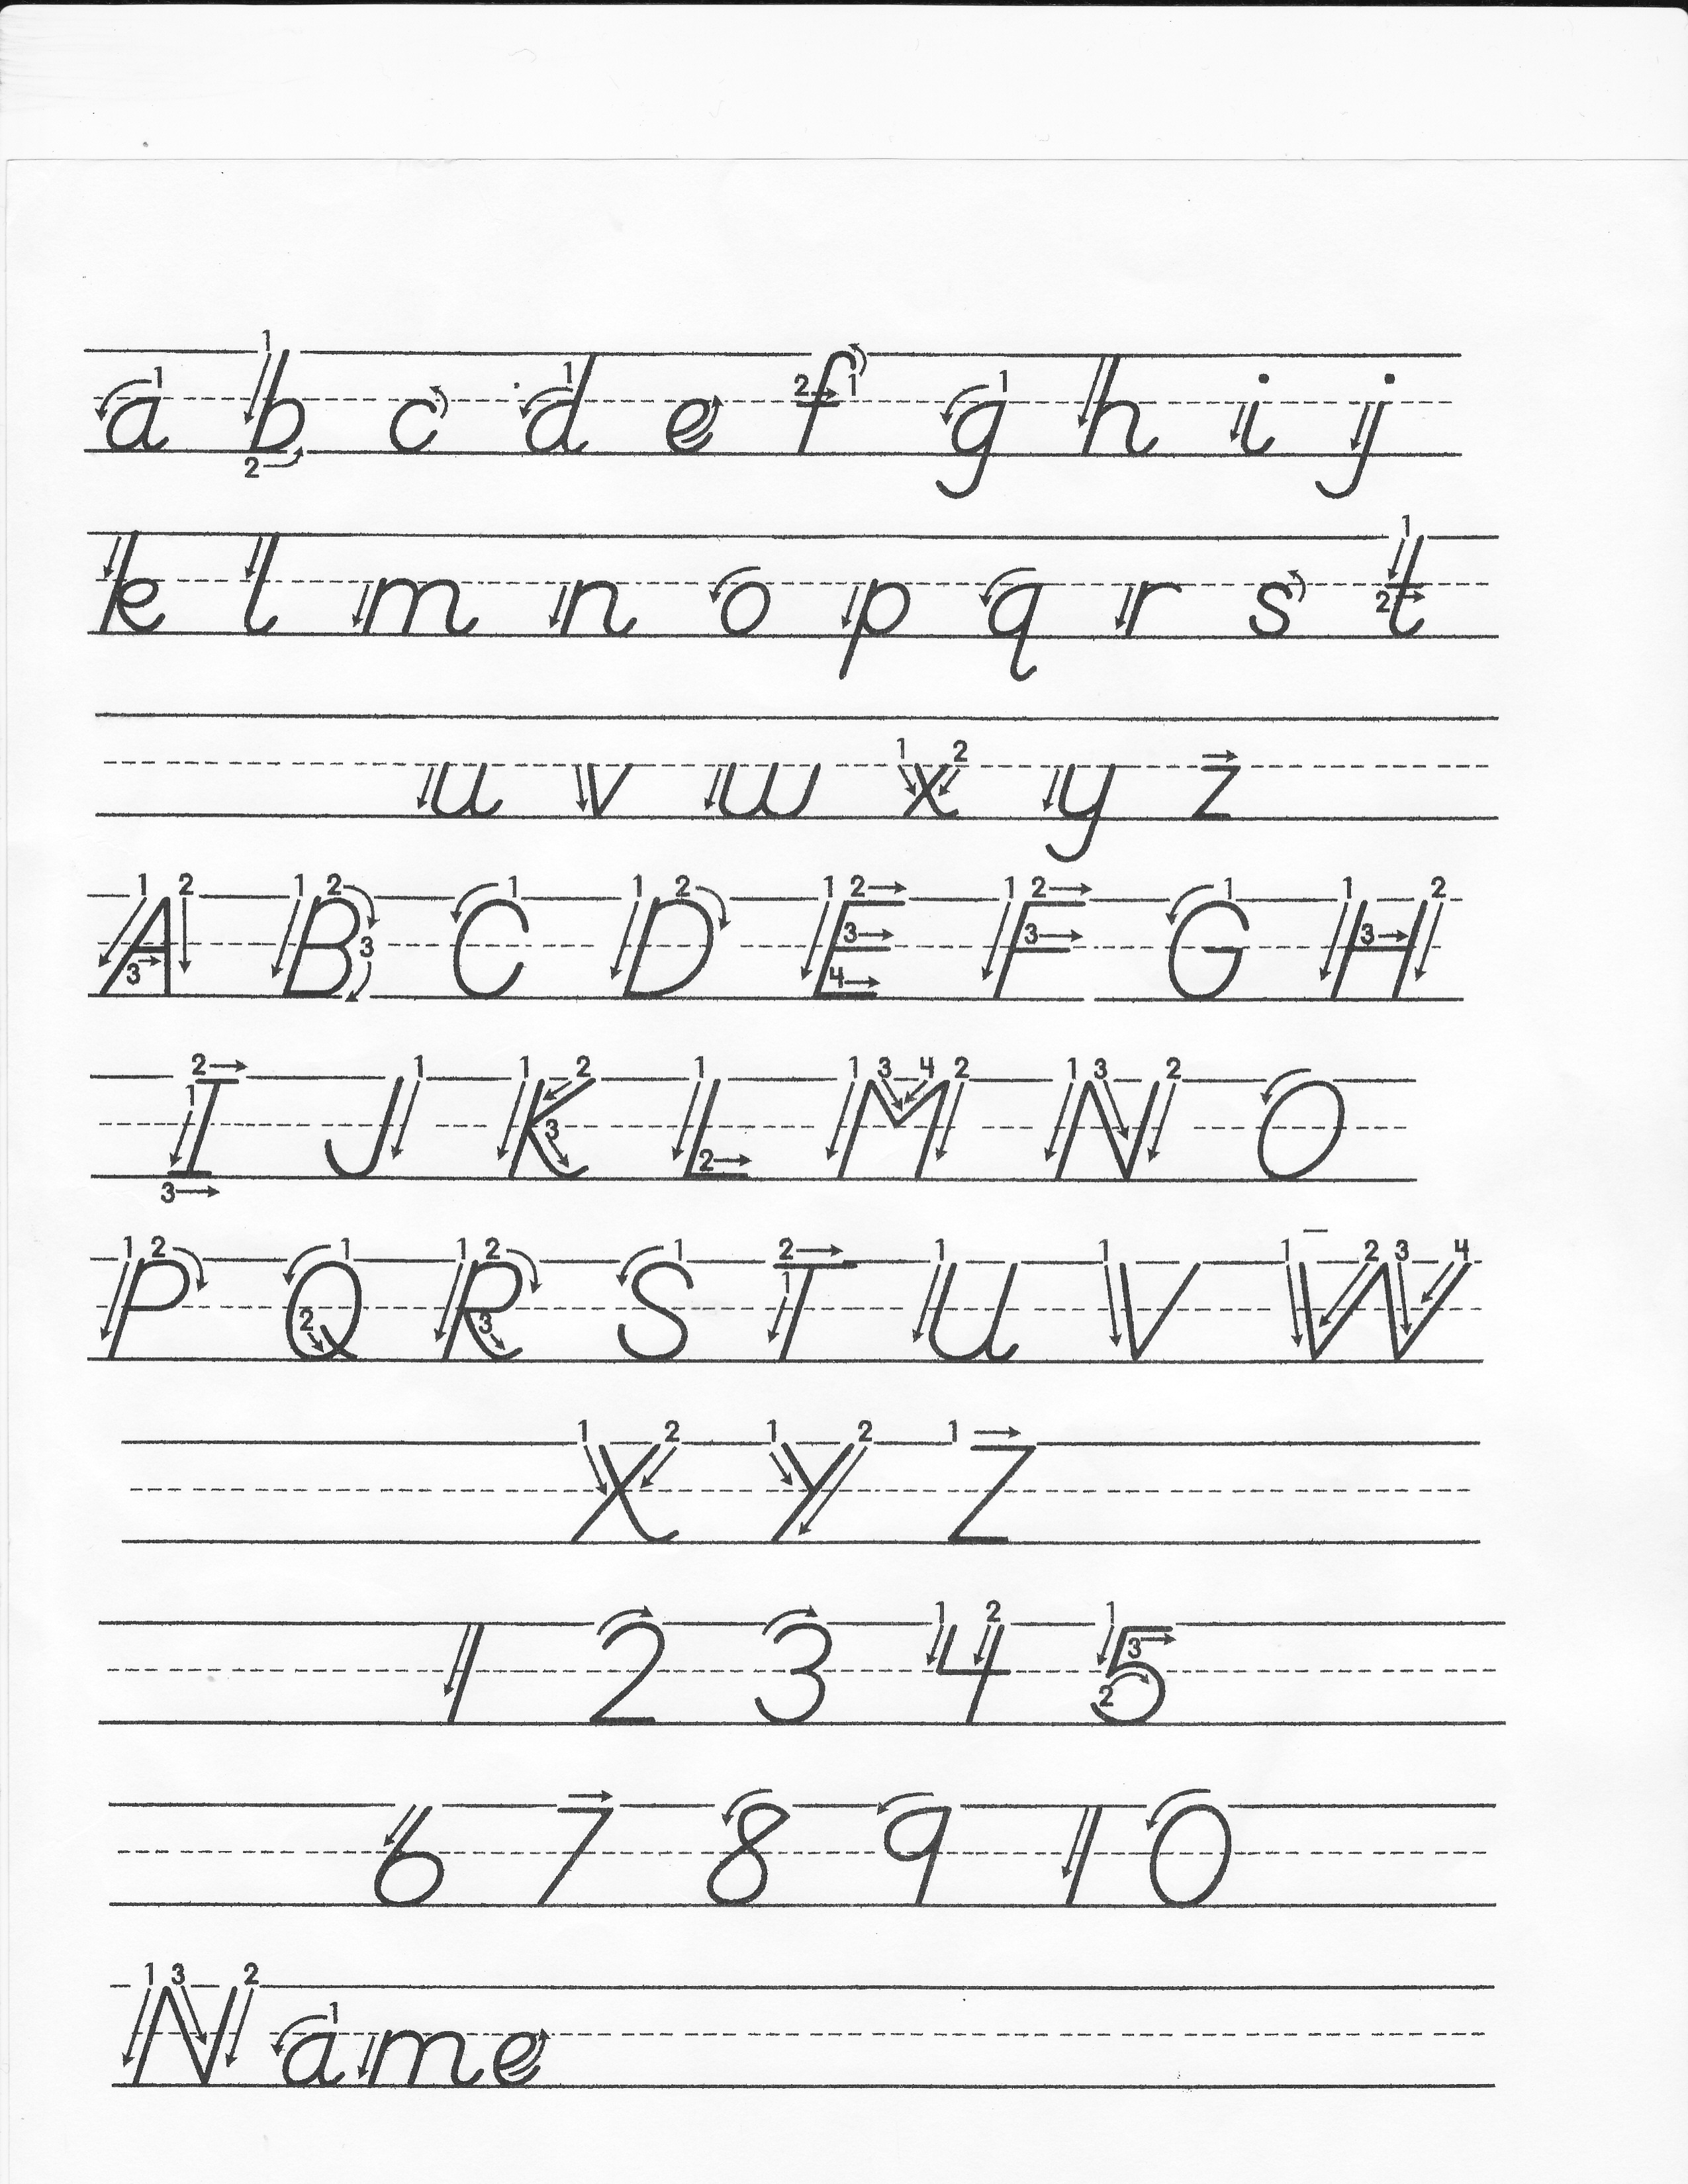 a b c d e f g h i j
k l m n o p q r s t
u v w x y z
A B C D E F G H
I J K L M N O
P Q R S T U V W
X Y Z
1 2 3 4 5
6 7 8 9 10
Name